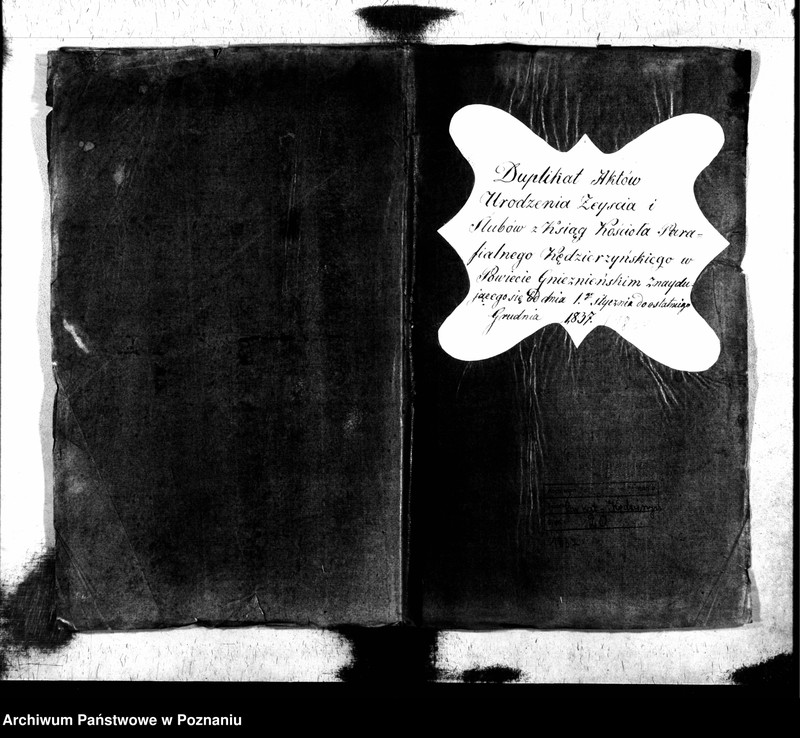 Duplikat Aktów
Urodzenia Zeyscia i
Slubów z Ksiąg Kościoła Para-
fialnego Kędzierzyńskiego w
Powiecie Gnieznieńskim znaydu
jącego się Od dnia 1.go stycznia do ostatniego
Grudnia 1837.
1837
Archiwum Państwowe w Poznaniu